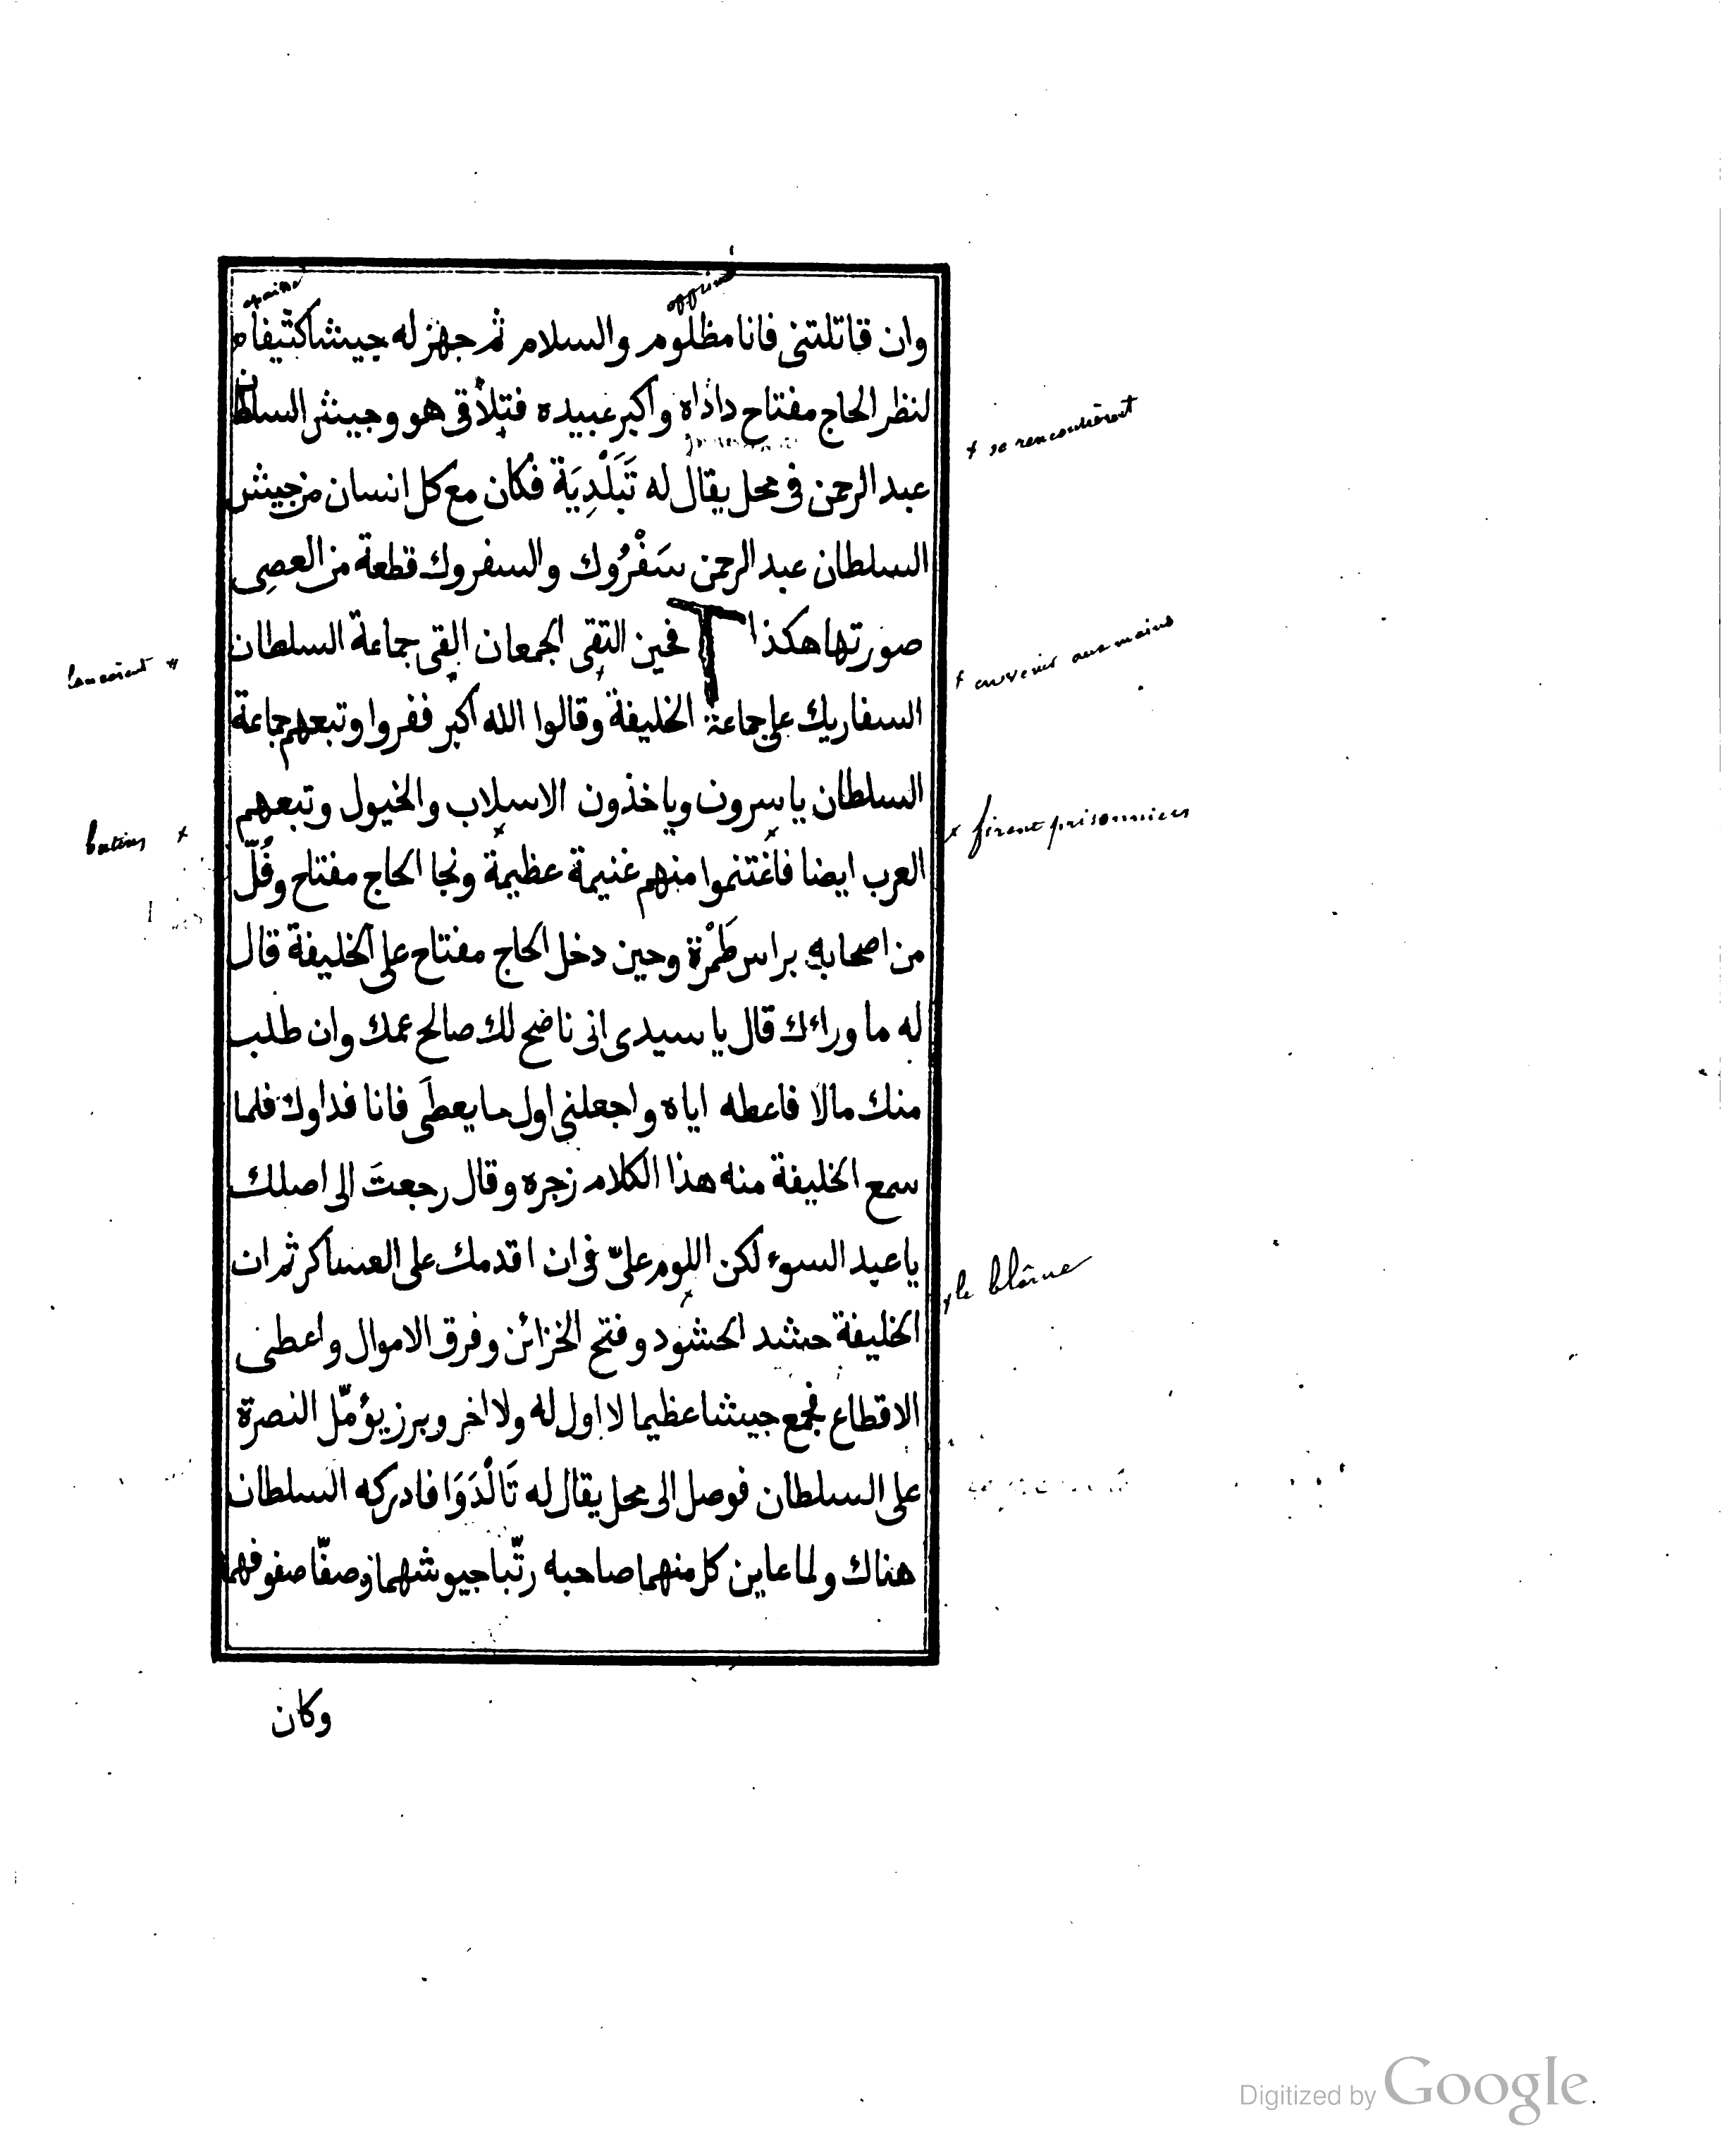 épaisse
opprimé
وان قاتلتنى فانا مظلوم والسلام ثم جهز له جيشا كثيفا
لنظر الحاج مفتاح داداه واكبر عبيده فتلاقى هو وجيش السلطان
+ se rencontrèrent
عبد الرحمن فى محل يقال له تَبَلْدِيَة فكان مع كل انسان من جيش
السلطان عبد الرحمن سَفْرُوك والسفروك قطعة من العصِى
صورتها هكذا فحين التقى الجمعان القى جماعة السلطان
+ en venir aux mains
lancèrent
السفاريك على جماعة الخليفة وقالوا الله اكبر ففروا وتبعهم جماعة
السلطان ياسرون وياخذون الاسلاب والخيول وتبعهم
+ firent prisonniers
butins +
العرب ايضا فاغتنموا منهم غنيمة عظيمة ونجا الحاج مفتاح وفُلّ
من اصحابه براس طَمْرة وحين دخل الحاج مفتاح على الخليفة قال
له ما وراءك قال يا سيدى انى ناصح لك صالح عمك وان طلب
منك مالا فاعطه اياه واجعلنى اول ما يعطَى فانا فداوك فلما
سمع الخليفة منه هذا الكلام زجره وقال رجعتَ الى اصلك
يا عبد السوء لكن اللوم علىّ فى ان اقدمك على العساكر ثم ان
le blâme
الخليفة حشد الحشود وفتح الخزائن وفرق الاموال واعطى
الاقطاع فجمع جيشا عظيما لا اول له ولا اخر وبرز يؤمّل النصرة
على السلطان فوصل الى محل يقال له تَالْدَوَا فادركه السلطان
هناك ولما عاين كل منهما صاحبه رتّبا جيوشهما وصفّا صفوفهما
وكان
Digitized by Google